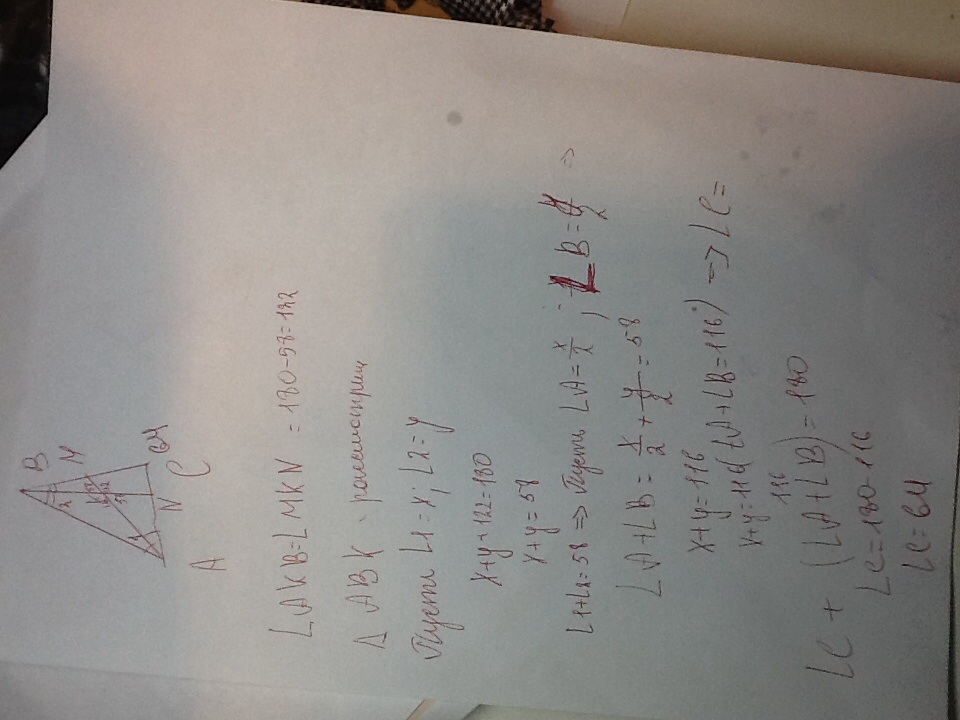 B
M
N
A C
64
∠AKB=∠MKN = 180-58=122
Δ ABK - рассмотрим
Пусть ∠1=x; ∠2=y
x+y+122=180
x+y=58
∠1+∠2=58 => Пусть ∠A=x/2 ; ∠B=y/2 =>
∠A+∠B= x/2 + y/2 =58
x+y=116
x+y=116 (∠A+∠B=116°) => ∠C=
116
∠C + (∠A+∠B)=180
∠C=180-116
∠C=64